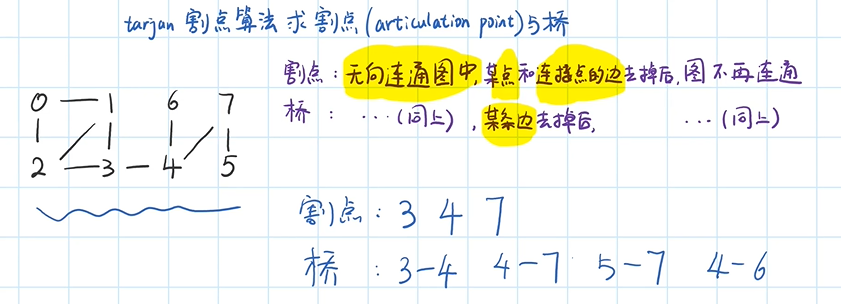 tarjan 割点算法 求割点(articulation point)与桥
割点：无向连通图中,某点和连接点的边去掉后,图不再连通
桥 ： ···(同上) ，某条边去掉后, ···(同上)
0 1 6 7
2 3 4 5
割点：3 4 7
桥 ：3-4 4-7 5-7 4-6